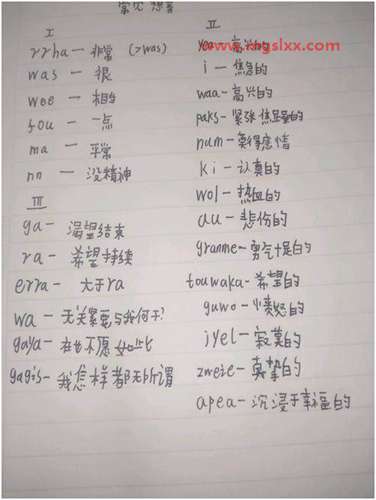 常见想音
I
rrha — 非常 (>was)
was — 很
wee — 相当
fou — 一点
ma — 平常
nn — 没精神
III
ga — 渴望结束
ra — 希望持续
erra — 大于ra
wa — 无关紧要与我何干?
gaya — 在也不愿如此
gagis — 我怎样都无所谓
II
yea — 高兴的
www.xngslxx.com
i — 焦急的
waa — 高兴的
paks — 紧张焦显的
num — 莫得感情
ki — 认真的
wol — 热血的
au — 悲伤的
granme — 勇气十足的
touwaka — 希望的
guwo — 愤怒的
jyel — 寂寞的
zweie — 真挚的
apea — 沉浸于幸福的